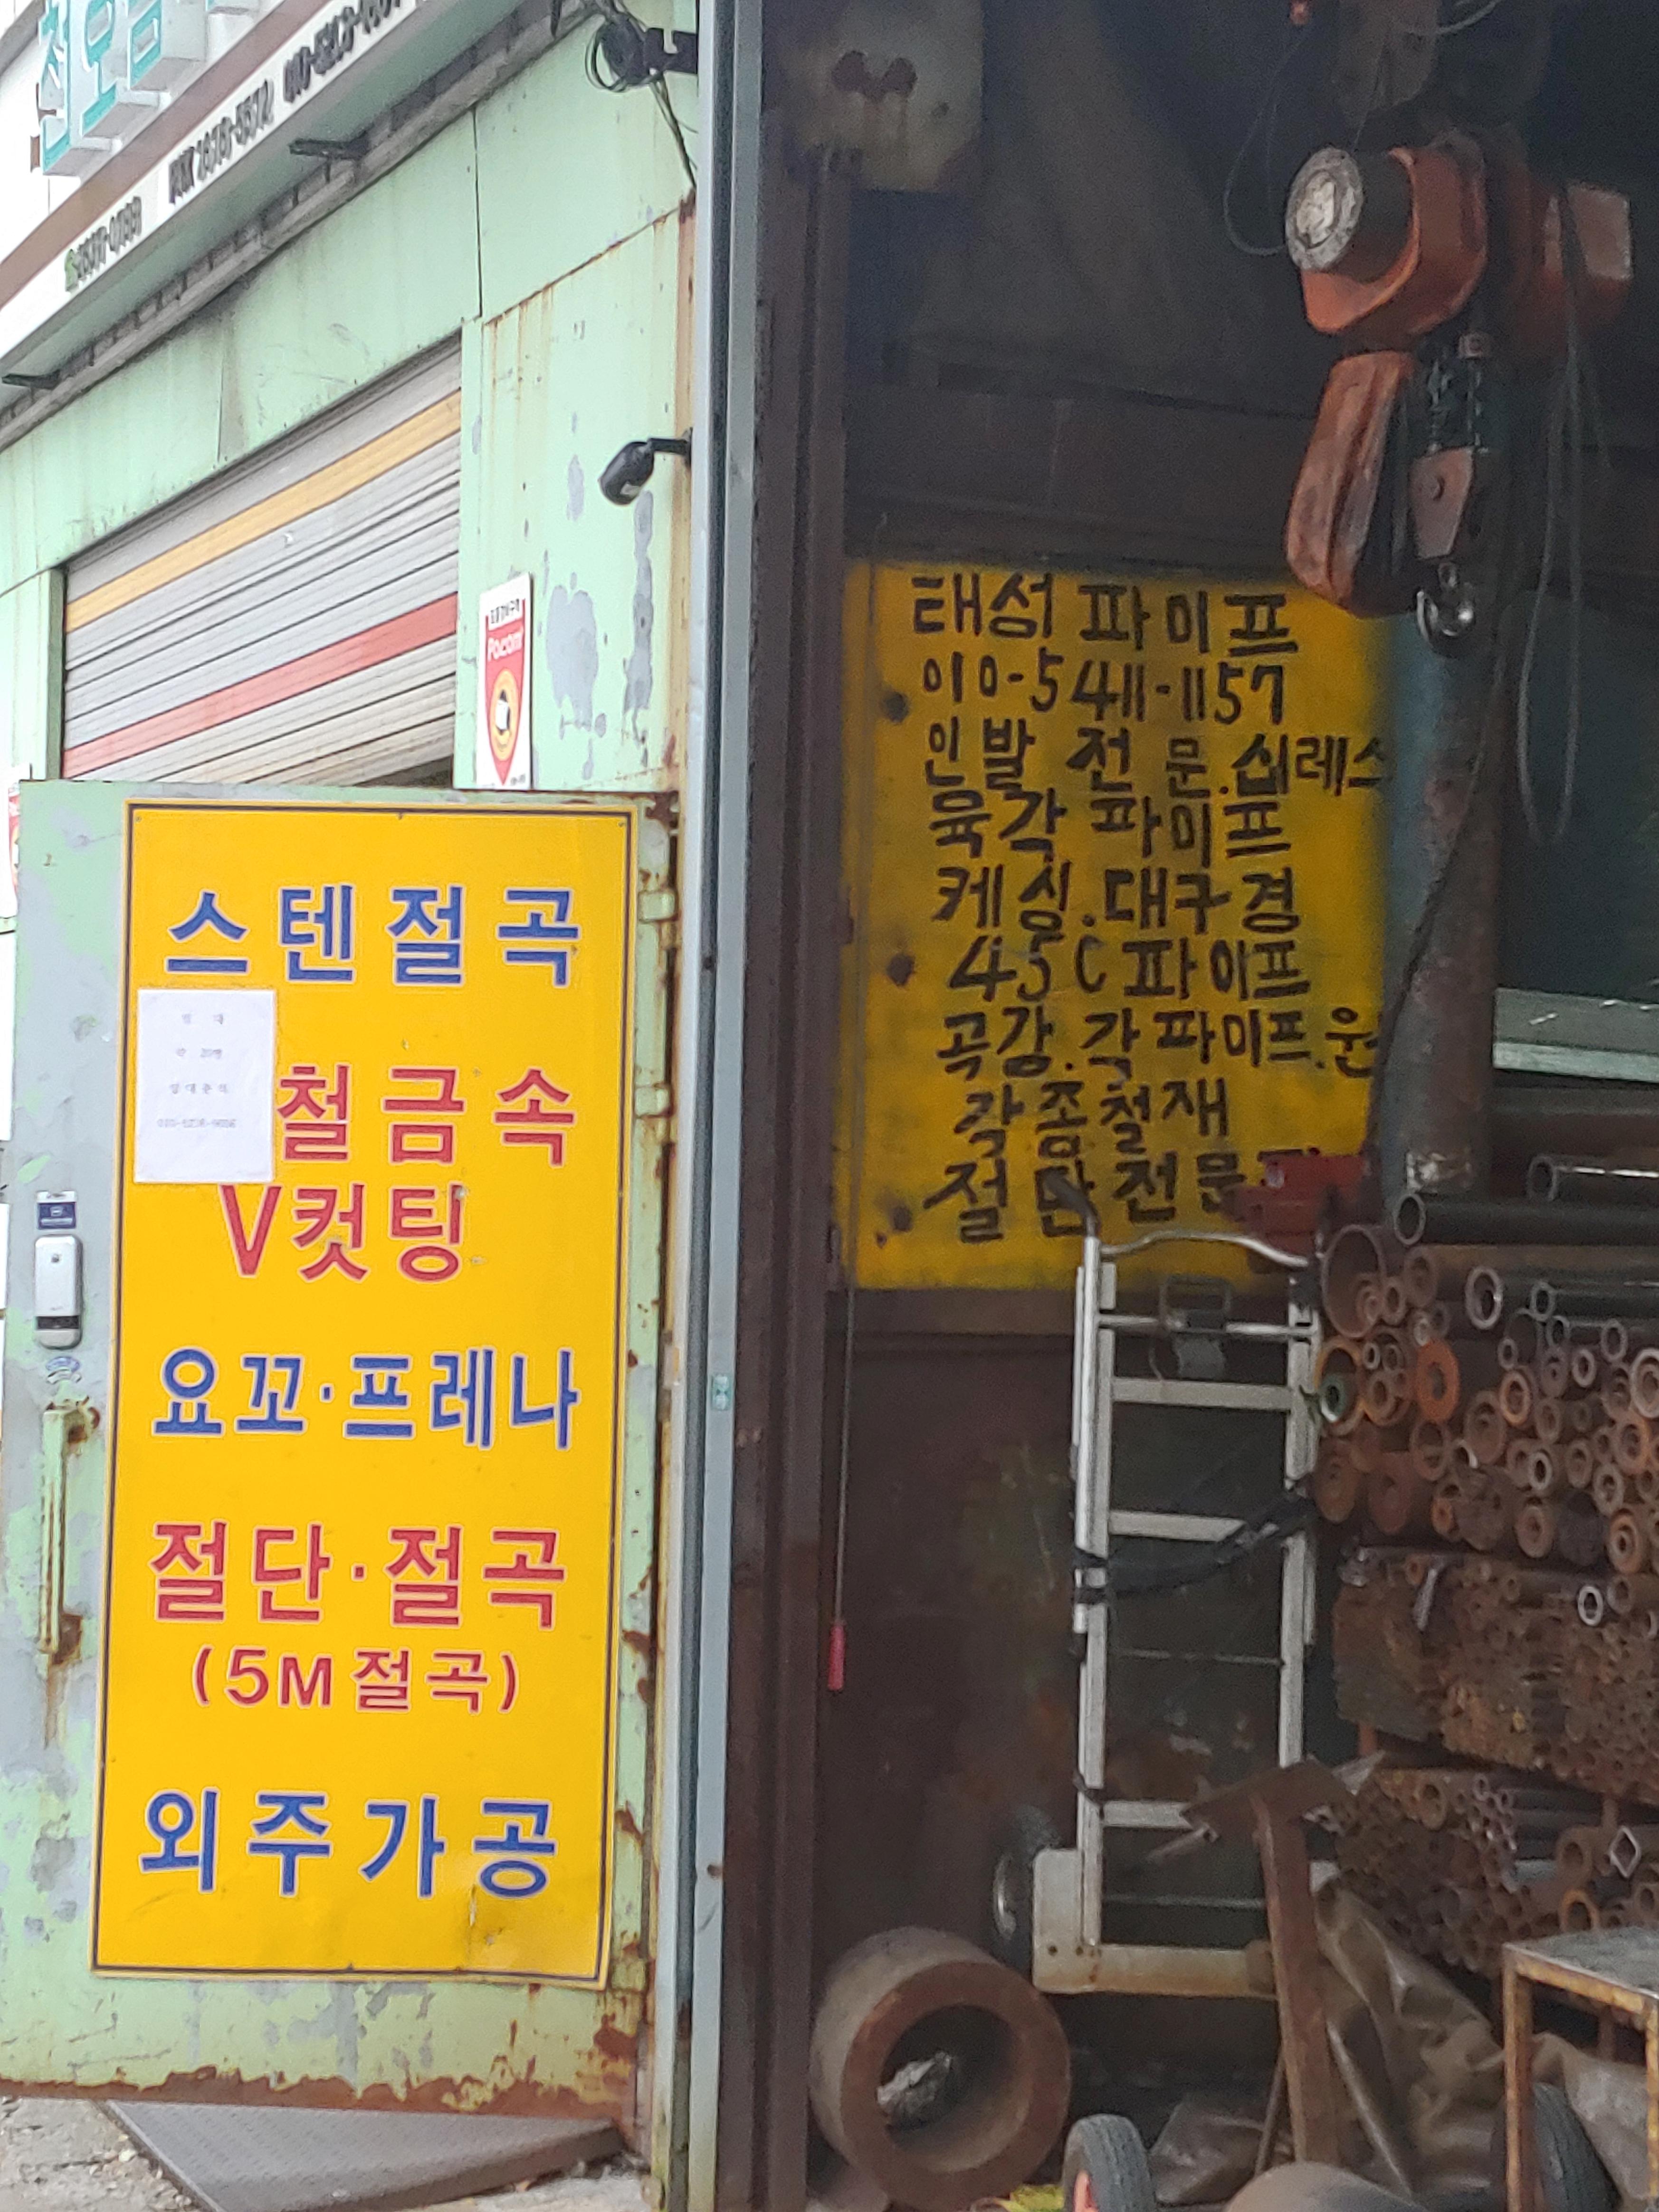 스텐절곡
철금속
V컷팅
요꼬·프레나
절단·절곡
(5M절곡)
외주가공
태성파이프
010-5411-1157
인발 전문.심레스
육각파이프
케싱.대구경
45C파이프
곡강.각파이프.원
각종철재
절단전문